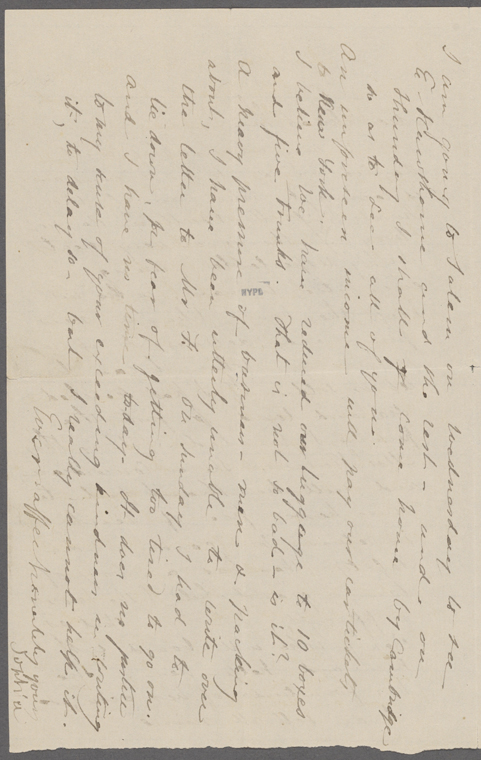 I am going to Salem on Wednesday to see
E. Hawthorne and the rest – and on
Thursday I shall come home by Cambridge
so as to see all of you.
An unforeseen income will pay our
to New York.
I believe we have reduced our luggage to 10 boxes
and five trunks. That is not so bad – is it?
A heavy pressure of business – men & packing
about, I have been utterly unable to write over
the letter to Mr F. On Sunday I had to
lie down, for fear of getting too tired to go on.
and I have no time today. It does no justice
to my sense of your exceeding kindness in writing
it, to delay so – but I really cannot help it.
Ever affectionately yours
Sophia
NYPL